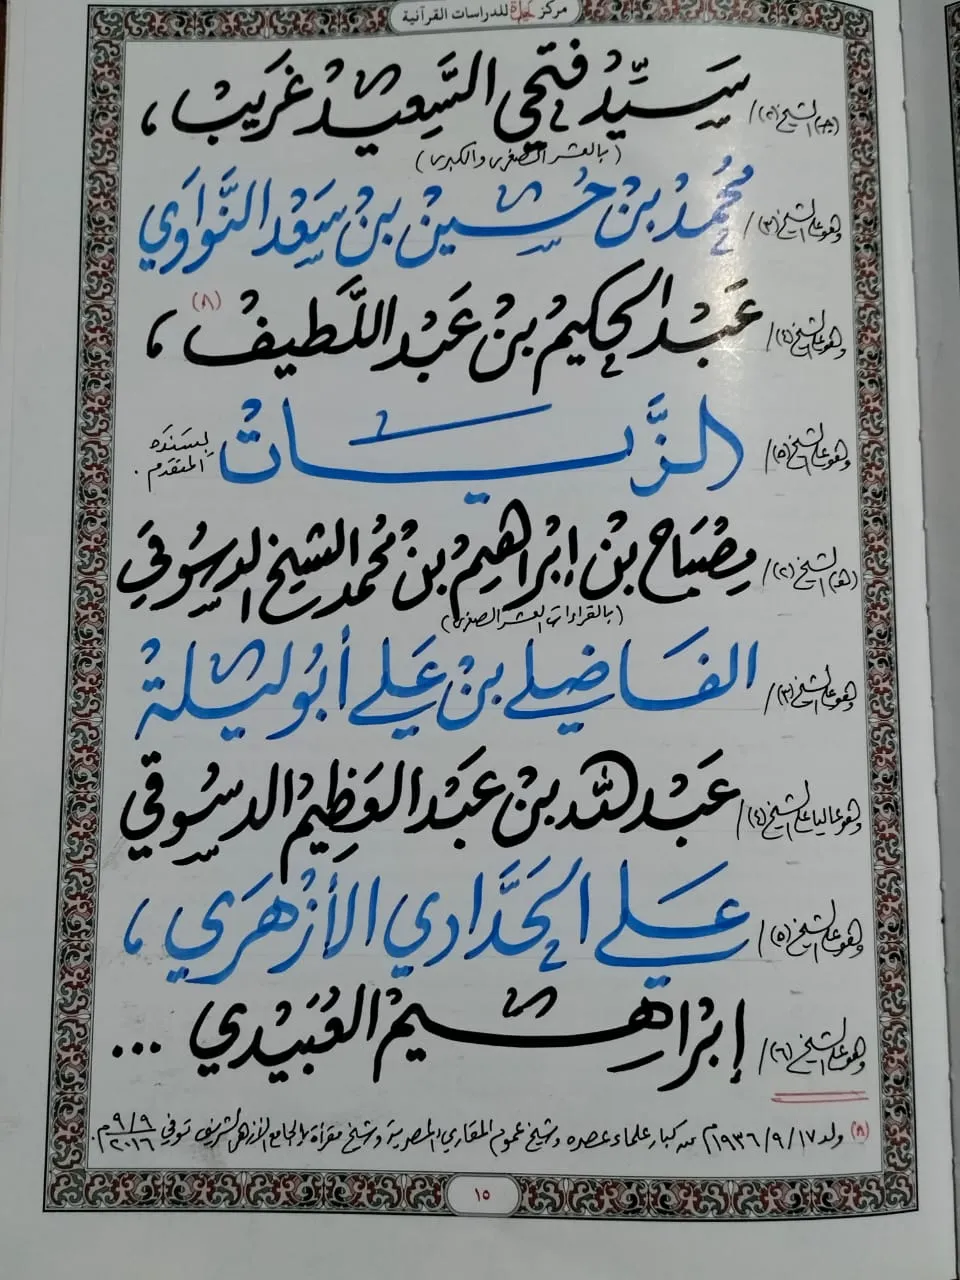 مركز للدراسات القرآنية
(ج) الشيخ (٢)/ سَيِّدْ فَتْحِي السَّعِيدْ غَرِيبْ ،
(بالعشر الصغرى والكبرى)
وهو على الشيخ (٣)/ مُحَمَّدْ بْنْ حُسَيْنْ بْنْ سَعْد النَّوَاوِي
وهو على الشيخ (٤)/ عَبْد الحَكِيمْ بْنْ عَبْد اللَّطِيفْ (٨) ،
وهو على الشيخ (٥)/ الزَّيَاتْ بسنده المتقدم .
(هـ) الشيخ (٢)/ مِصْبَاح بْنْ إِبْرَاهِيمْ بْنْ مُحَمَّد الشيخ الدسوقي
(بالقراءات العشر الصغرى)
وهو على الشيخ (٣)/ الفَاضِلي بْنْ عَلِي أَبُو لَيْلَة
وهو عاليا على الشيخ (٤)/ عَبْد اللَّه بْنْ عَبْد العَظِيمْ الدسُوقي
وهو على الشيخ (٥)/ عَلِي الحَدَّادِي الأَزْهَرِي ،
وهو على الشيخ (٦)/ إِبْرَاهِيمْ العُبَيْدِي ...
(٨) ولد ١٧/ ٩/ ١٩٣٦م من كبار علماء عصره وشيخ عموم المقارئ المصرية وشيخ مقرأة الجامع الأزهر الشريف توفي ٩/٩/٢٠١٦م.
١٥